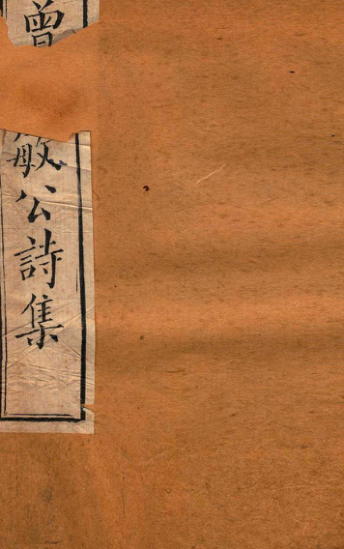 曾
敏公詩集